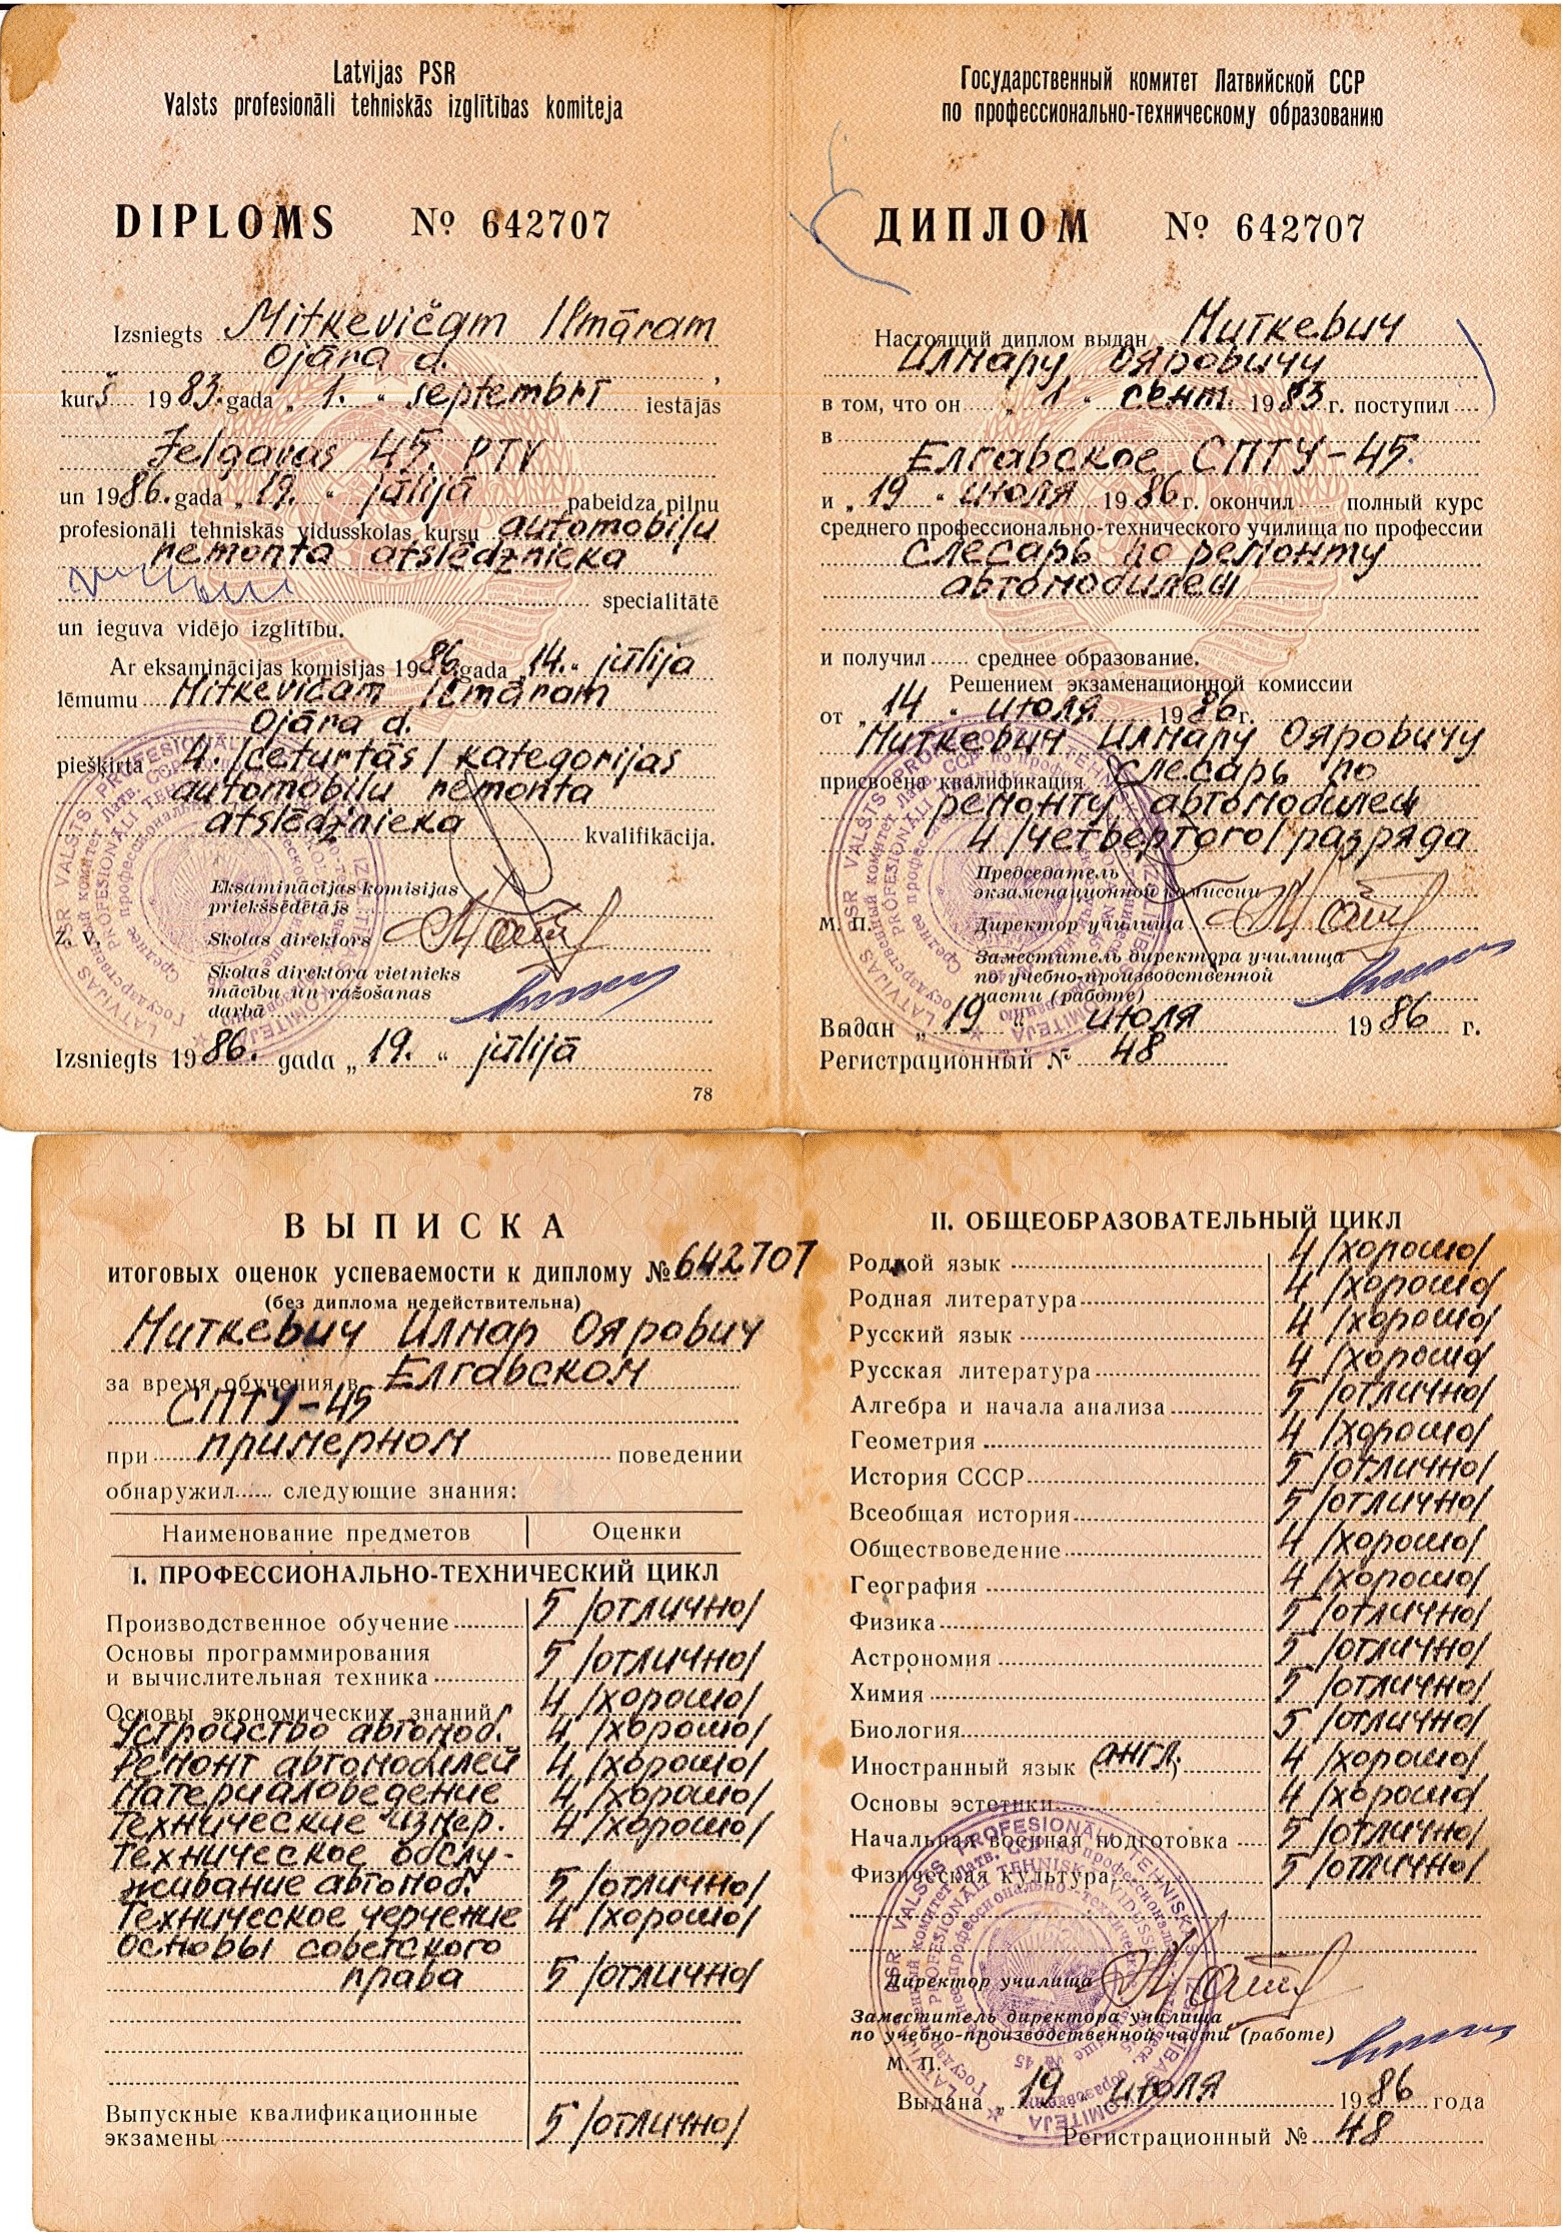 Latvijas PSR
Valsts profesionāli tehniskās izglītības komiteja
DIPLOMS № 642707
Izsniegts Mitkevičam Ilmāram
Ojāra d.,
kurš 1983. gada „1.“ septembrī iestājās
Jelgavas 45. PTV
un 1986. gada „19.“ jūlijā pabeidza pilnu
profesionāli tehniskās vidusskolas kursu automobiļu
remonta atslēdznieka
specialitātē
un ieguva vidējo izglītību.
Ar eksaminācijas komisijas 1986. gada „14.“ jūlija
lēmumu Mitkevičam Ilmāram
Ojāra d.
piešķirta 4. /ceturtās/ kategorijas
automobiļu remonta
atslēdznieka kvalifikācija.
Eksaminācijas komisijas
priekšsēdētājs
Z. V. Skolas direktors
Skolas direktora vietnieks
mācību un ražošanas
darbā
Izsniegts 1986. gada „19.“ jūlijā
78
Государственный комитет Латвийской ССР
по профессионально-техническому образованию
ДИПЛОМ № 642707
Настоящий диплом выдан Миткевич
Илмару Ояровичу
в том, что он „1“ сент. 1983 г. поступил
в
Елгавское СПТУ-45.
и „19“ июля 1986 г. окончил полный курс
среднего профессионально-технического училища по профессии
слесарь по ремонту
автомобилей
и получил среднее образование.
Решением экзаменационной комиссии
от „14“ июля 1986 г.
Миткевич Илмару Ояровичу
присвоена квалификация слесарь по
ремонту автомобилей
4 /четвертого/ разряда
Председатель
экзаменационной комиссии
М. П. Директор училища
Заместитель директора училища
по учебно-производственной
части (работе)
Выдан „19“ июля 1986 г.
Регистрационный № 48
ВЫПИСКА
итоговых оценок успеваемости к диплому № 642707
(без диплома недействительна)
Миткевич Илмар Оярович
за время обучения в Елгавском
СПТУ-45
при примерном поведении
обнаружил следующие знания:
Наименование предметов Оценки
I. ПРОФЕССИОНАЛЬНО-ТЕХНИЧЕСКИЙ ЦИКЛ
Производственное обучение 5 /отлично/
Основы программирования
и вычислительная техника 5 /отлично/
Основы экономических знаний 4 /хорошо/
Устройство автомоб. 4 /хорошо/
Ремонт автомобилей 4 /хорошо/
Материаловедение 4 /хорошо/
Технические измер. 4 /хорошо/
Техническое обслу-
живание автомоб. 5 /отлично/
Техническое черчение 4 /хорошо/
Основы советского
права 5 /отлично/
Выпускные квалификационные
экзамены 5 /отлично/
II. ОБЩЕОБРАЗОВАТЕЛЬНЫЙ ЦИКЛ
Родной язык 4 /хорошо/
Родная литература 4 /хорошо/
Русский язык 4 /хорошо/
Русская литература 4 /хорошо/
Алгебра и начала анализа 5 /отлично/
Геометрия 4 /хорошо/
История СССР 5 /отлично/
Всеобщая история 5 /отлично/
Обществоведение 4 /хорошо/
География 4 /хорошо/
Физика 5 /отлично/
Астрономия 5 /отлично/
Химия 5 /отлично/
Биология 5 /отлично/
Иностранный язык (англ.) 4 /хорошо/
Основы эстетики 4 /хорошо/
Начальная военная подготовка 5 /отлично/
Физическая культура 5 /отлично/
Директор училища
Заместитель директора училища
по учебно-производственной части (работе)
М. П.
Выдана „19“ июля 1986 года
Регистрационный № 48